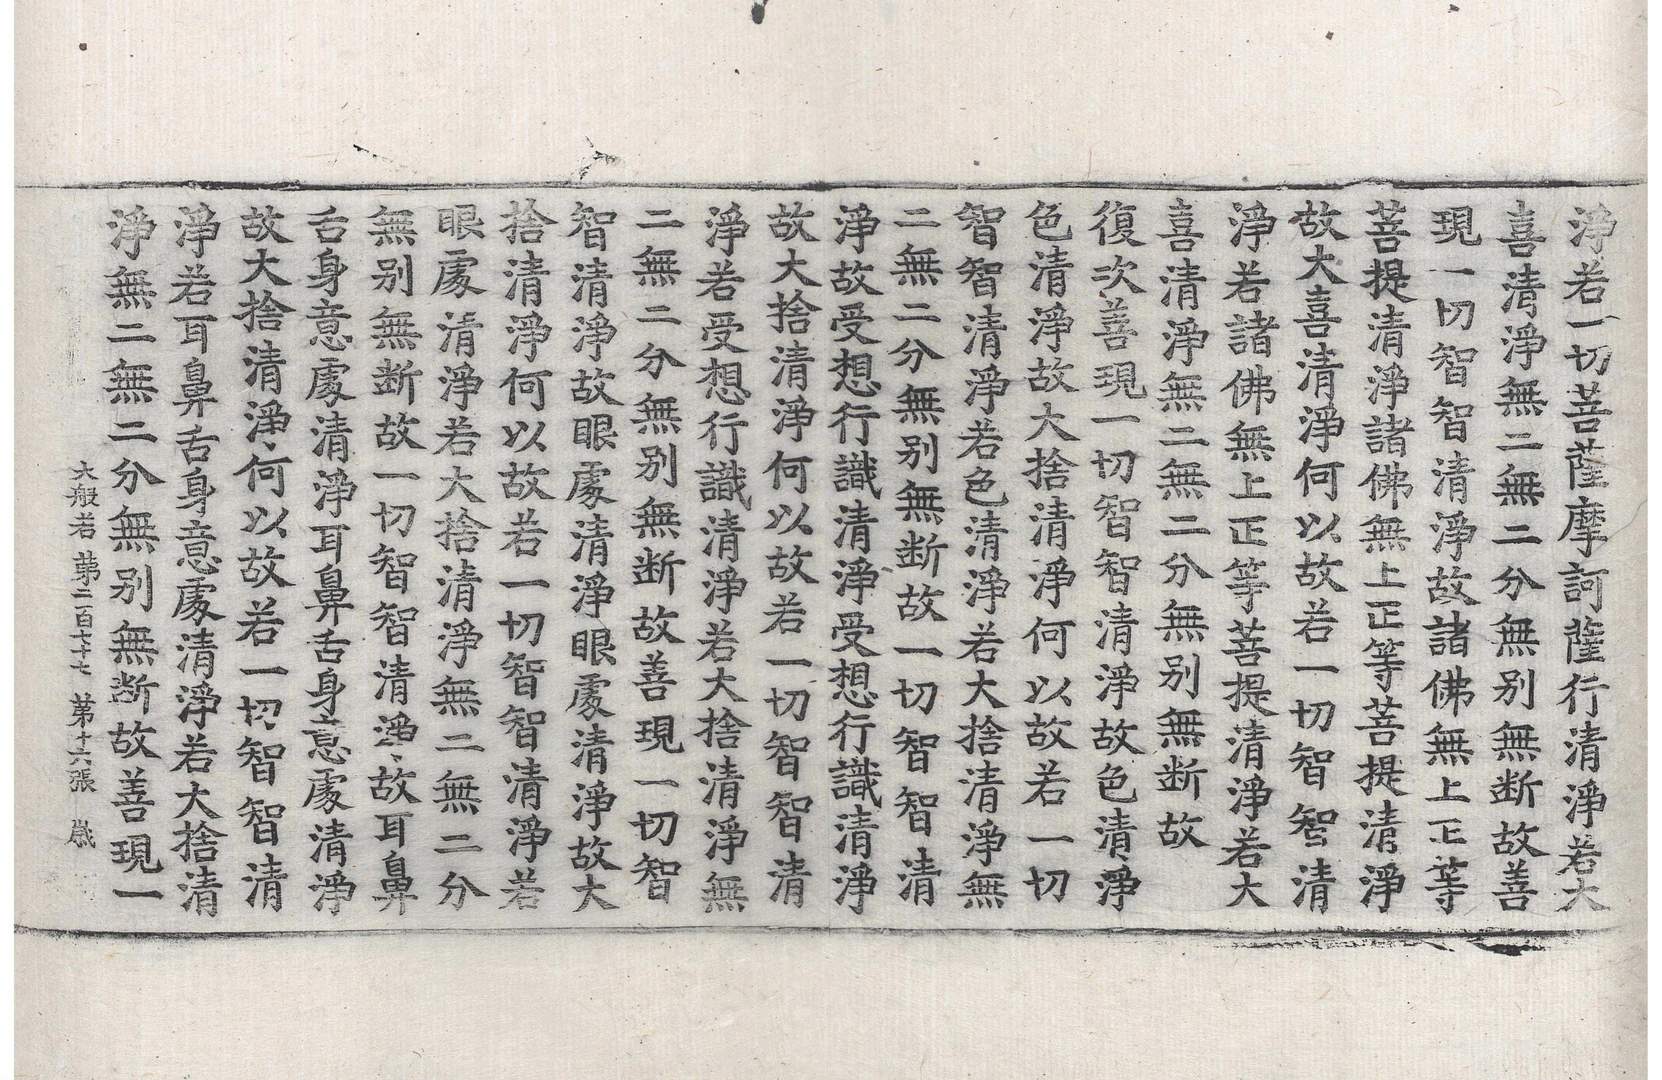 淨若一切菩薩摩訶薩行清淨若大
喜清淨無二無二分無別無断故善
現一切智智清淨故諸佛無上正等
菩提清淨諸佛無上正等菩提清淨
故大喜清淨何以故若一切智智清
淨若諸佛無上正等菩提清淨若大
喜清淨無二無二分無別無断故
復次善現一切智智清淨故色清淨
色清淨故大捨清淨何以故若一切
智智清淨若色清淨若大捨清淨無
二無二分無別無断故一切智智清
淨故受想行識清淨受想行識清淨
故大捨清淨何以故若一切智智清
淨若受想行識清淨若大捨清淨無
二無二分無別無断故善現一切智
智清淨故眼處清淨眼處清淨故大
捨清淨何以故若一切智智清淨若
眼處清淨若大捨清淨無二無二分
無別無断故一切智智清淨故耳鼻
舌身意處清淨耳鼻舌身意處清淨
故大捨清淨何以故若一切智智清
淨若耳鼻舌身意處清淨若大捨清
淨無二無二分無別無断故善現一
大般若 第二百七十七 第十六張 歲